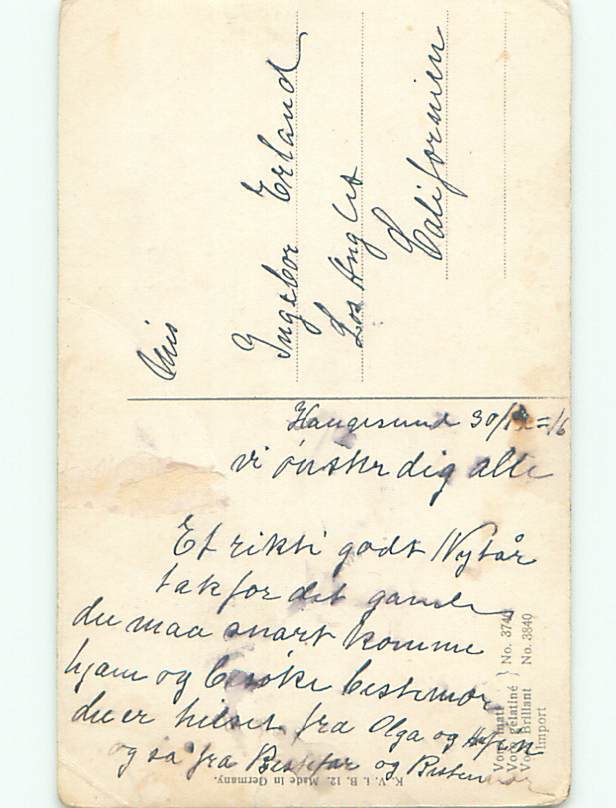 Mis
Ingebor Erland
Los Angles
Californien
Haugesund 30/12=16
vi ønsker dig alle
Et rikti godt Nytår
tak for det gamle
du maa snart komme
hjam og besøke bestemor
du er hilset fra Olga og
og så fra Bestefar og Bestemor
K. V. i. B. 12. Made in Germany.
Vor. matt
Vor. gelatiné } No. 3740
Vor. Brillant No. 3840
Import